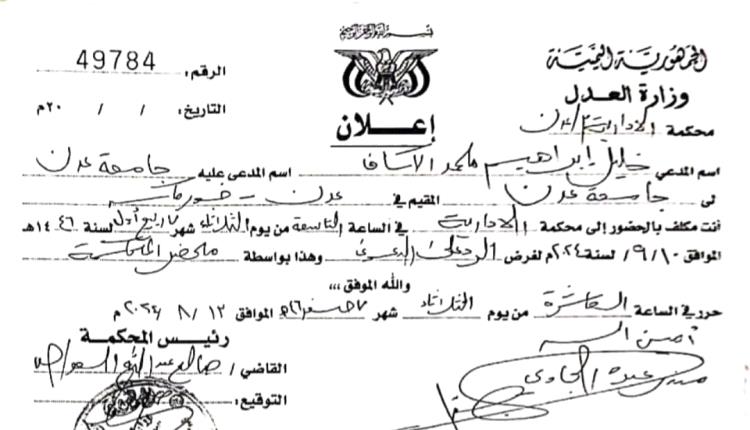 بسم الله الرحمن الرحيم
الجمهورية اليمنية
وزارة العدل
محكمة الادارية م/عدن
الرقم: 49784
التاريخ: / / ٢٠م
إعلان
اسم المدعي خليل ابراهيم محمد الاسكاف اسم المدعى عليه جامعة عدن
لى جامعة عدن المقيم في عدن - خورمكسر
أنت مكلف بالحضور إلى محكمة الادارية في الساعة التاسعة من يوم الثلاثاء شهر ربيع أول لسنة ١٤٤٦هـ
الموافق ٩/١٠/ لسنة ٢٠٢٤م لغرض الرد على الدعوى وهذا بواسطة محضر المحكمة
والله الموفق ،،،
حرر في الساعة العاشرة من يوم الثلاثاء شهر ٧ صفر ٤٦هـ الموافق ١٣/ ٨/ ٢٠٢٤م
أمين السر
رئيس المحكمة
القاضي/ صالح عبد
التوقيع: